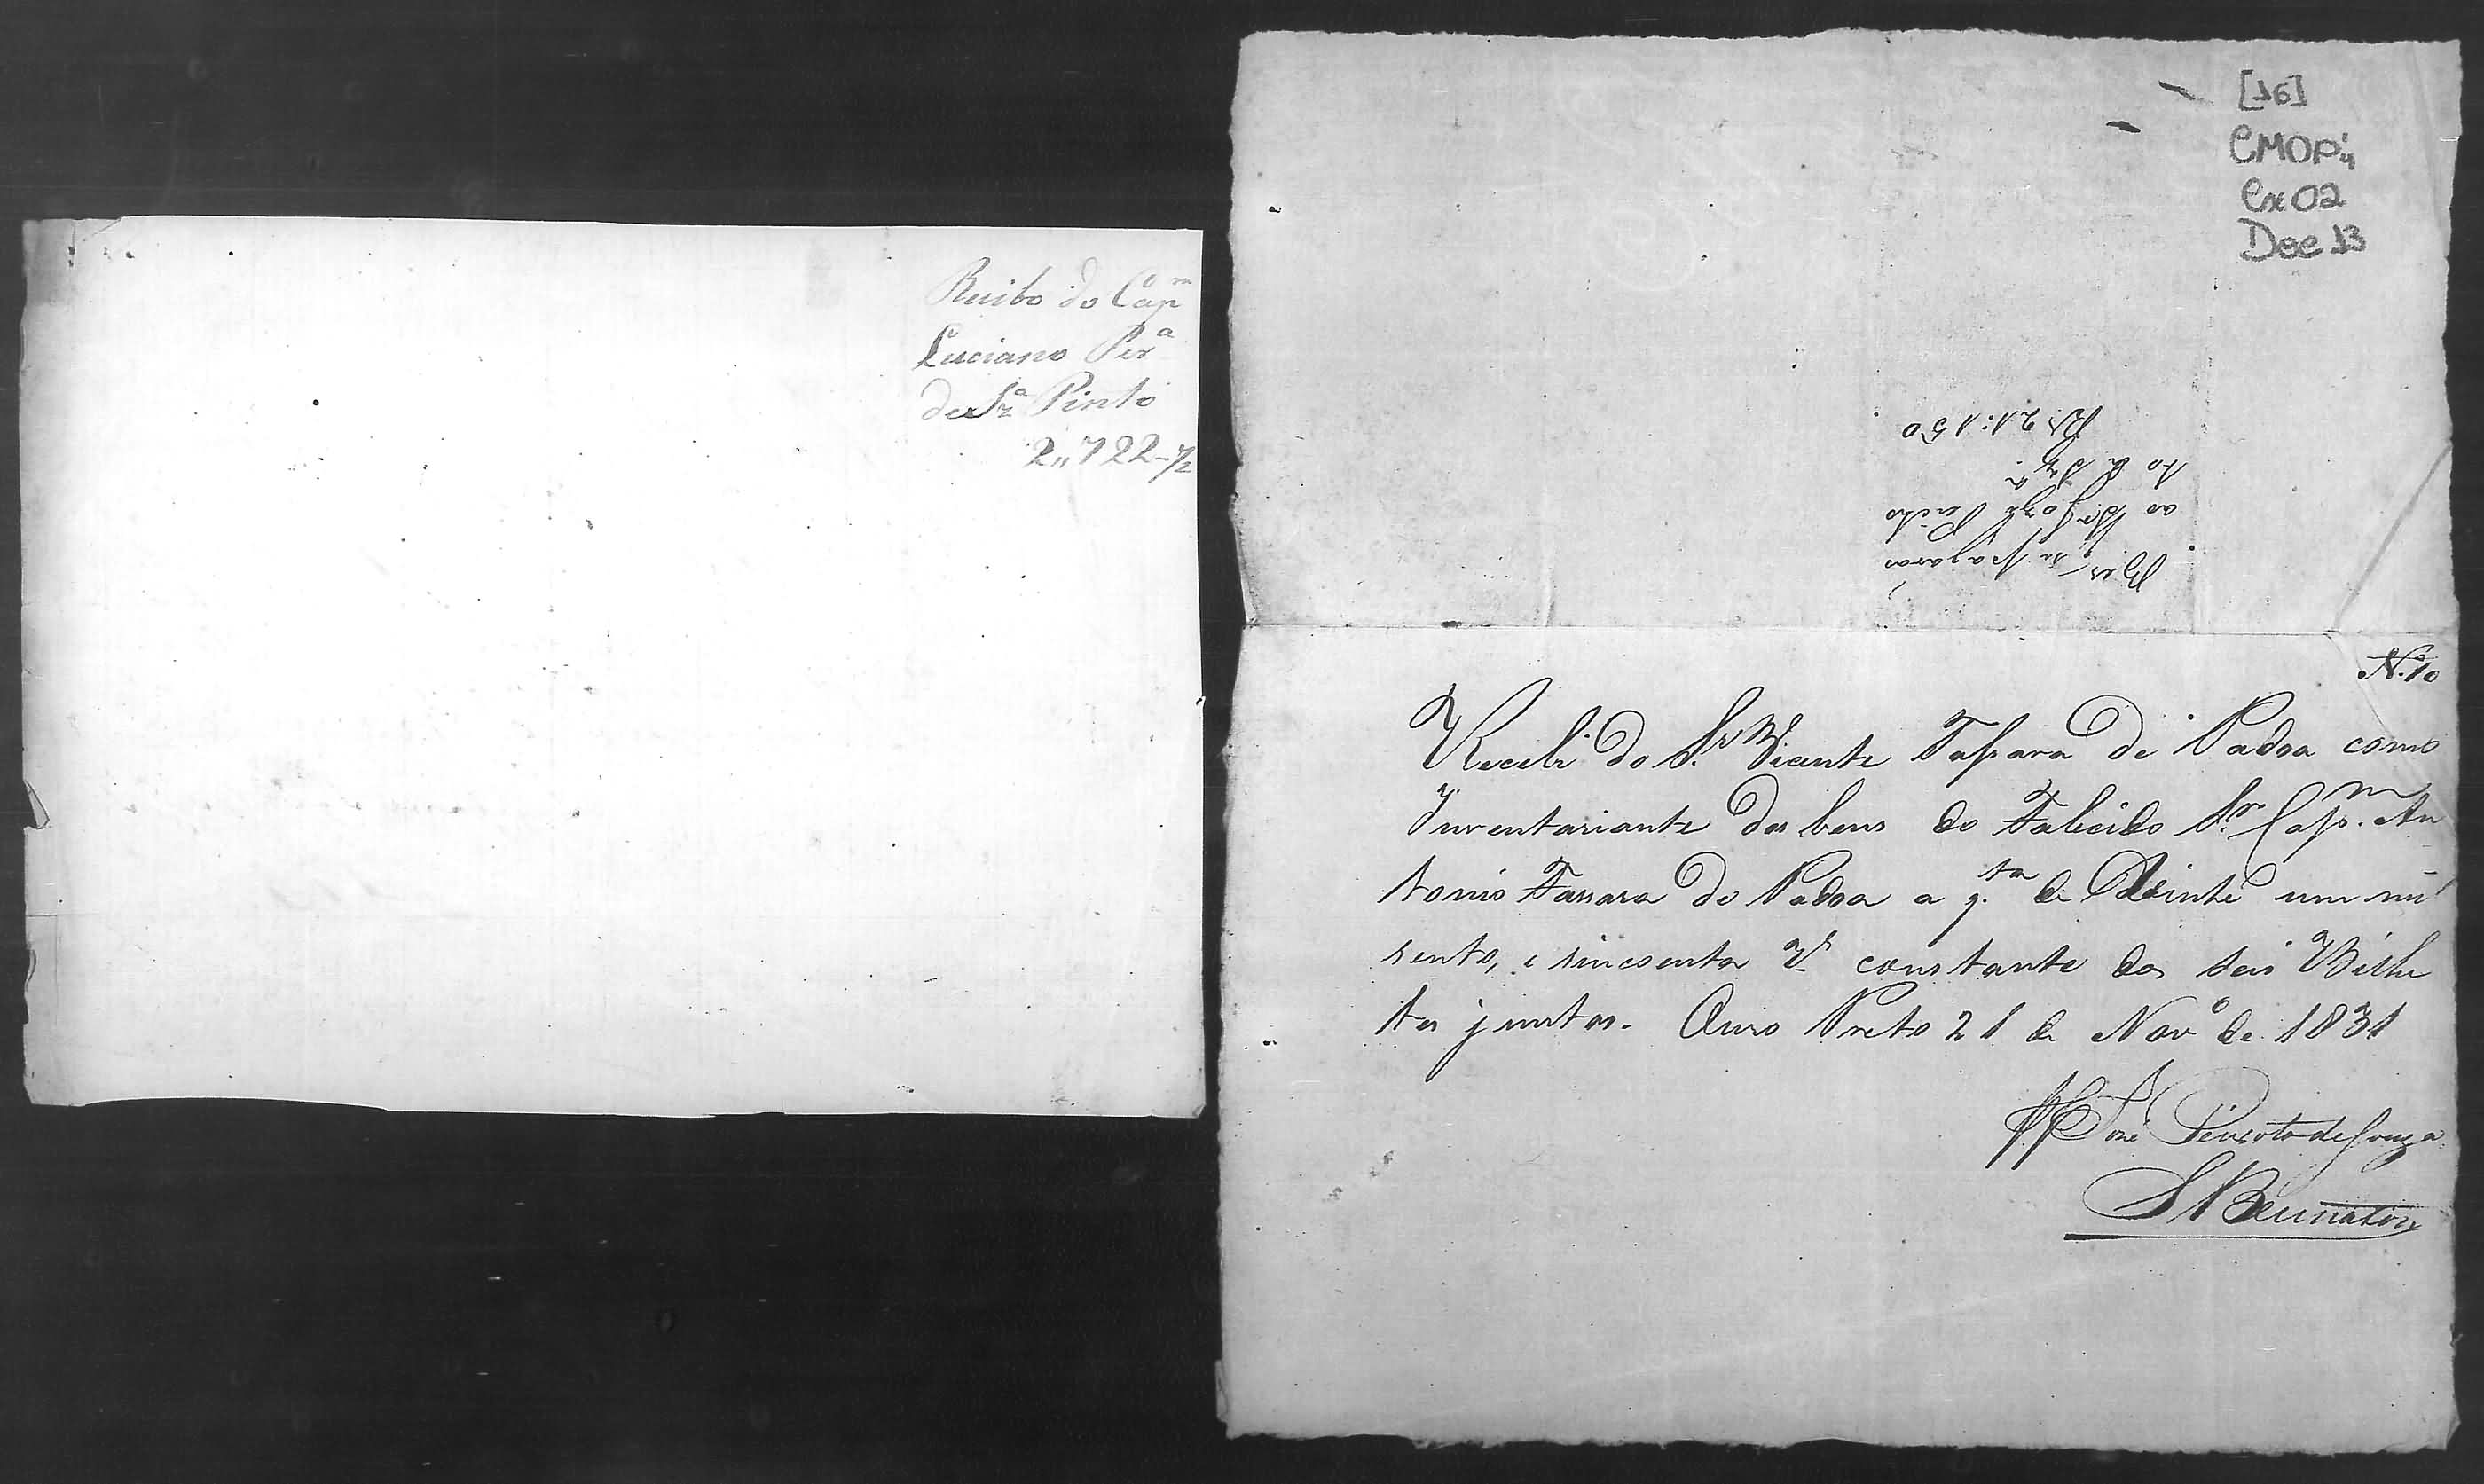 Recibo do Cap.m
Luciano Per.a
de Sz.a Pinto
2,,722-1/2
[16]
CMOP
Cx 02
Doc 13
se pagarão
ao Sr Joze Peixo
to de Sz.a
Rs 21:150
N.º 10
Recebi do S.r Vicente Tassara de Padoa como
Inventariante dos bens do Falecido S.r Cap.m An
tonio Tassara de Padoa a q.ta de Vinte um mil
sento, e sincoenta r.s constante dos seis Bilhe
tes juntos. Ouro Preto 21 de Nov.o de 1831
José Peixoto de Souza